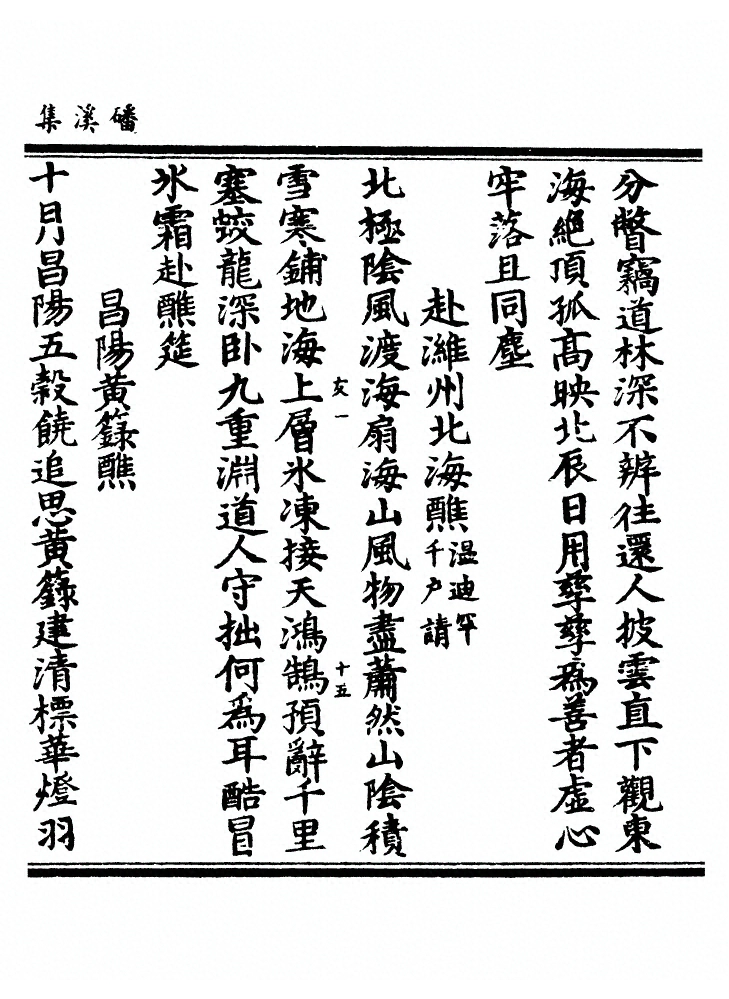 磻溪集
分瞥竊道林深不辨往還人披雲直下觀東
海絕頂孤高映北辰日用孳孳為善者虛心
牢落且同塵
赴濰州北海醮温迪罕千户請
北極陰風渡海扇海山風物盡蕭然山陰積
友一
十五
雪寒鋪地海上層氷凍接天鴻鵠預辭千里
塞蛟龍深卧九重淵道人守拙何爲耳酷冒
氷霜赴醮筵
昌陽黄籙醮
十月昌陽五穀饒追思黄籙建清標華燈羽